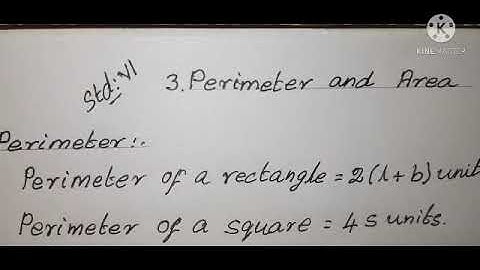 K
KINEMASTER
Std: VI
3. Perimeter and Area
Perimeter:-
Perimeter of a rectangle = 2(l+b) unit
Perimeter of a square = 4s units.